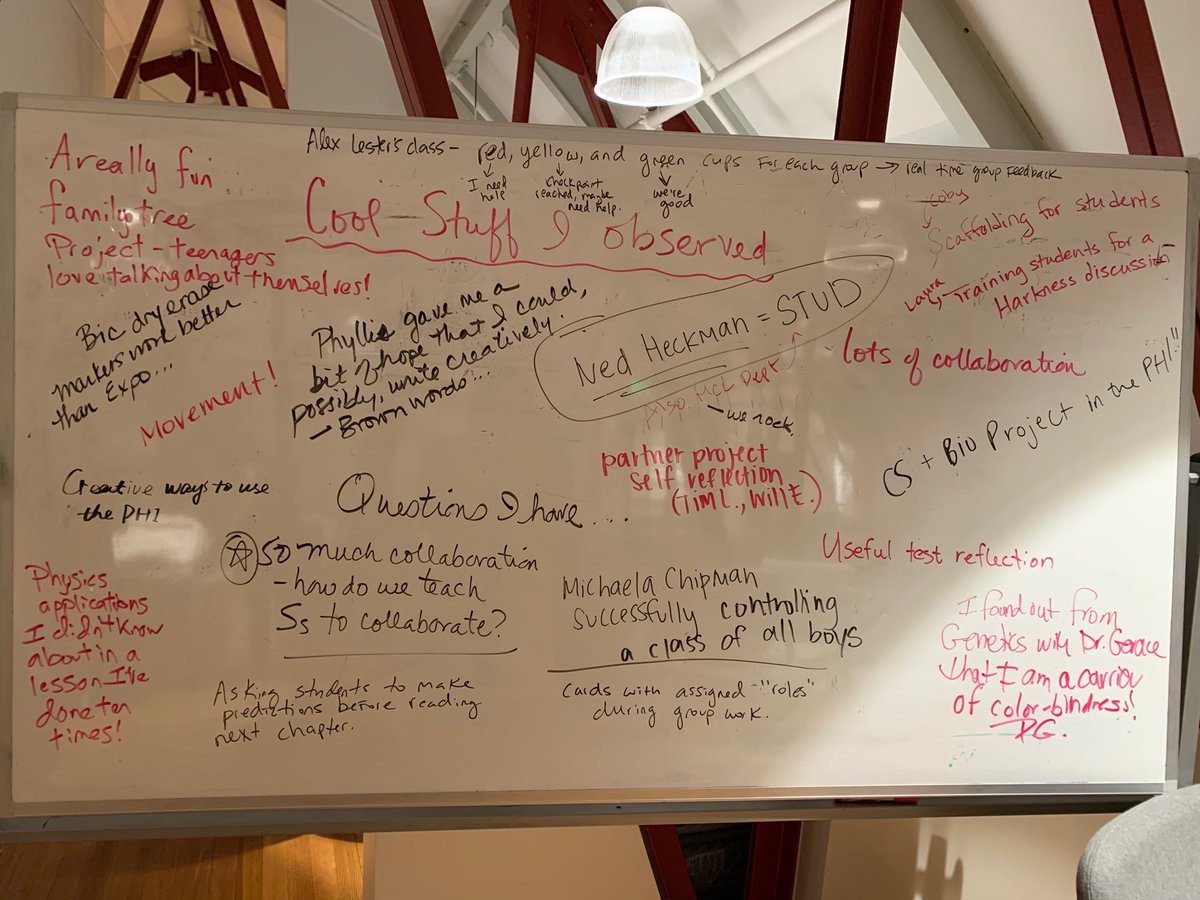 Alex Lester's class - red, yellow, and green cups for each group → real time group feedback
I need
help
checkpoint
reached, maybe
need help.
we're
good
A really fun
family tree
Project - teenagers
love talking about themselves!
Cool Stuff I observed
Toby
Scaffolding for students
Laura
Training students for a
Harkness discussion
Bic dry erase
markers work better
than Expo...
Movement!
Phyllis gave me a
bit of hope that I could,
possibly, write creatively.
- Brown words...
Ned Heckman = STUD
Also, MCL Dept
- we rock.
lots of collaboration
CS + Bio Project in the PHI!!
partner project
self reflection
(Tim L., Will E.)
Creative ways to use
the PHI
Questions I have...
So much collaboration
- how do we teach
Ss to collaborate?
Useful test reflection
Michaela Chipman
successfully controlling
a class of all boys
Physics
applications
I didn't know
about in a
lesson I've
done ten
times!
Asking students to make
predictions before reading
next chapter.
Cards with assigned "roles"
during group work.
I found out from
Genetics with Dr. Gerace
that I am a carrier
of color-blindness!
DG.